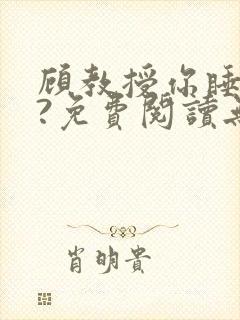 顧教授你睡
?免費閱讀無
肖明貴